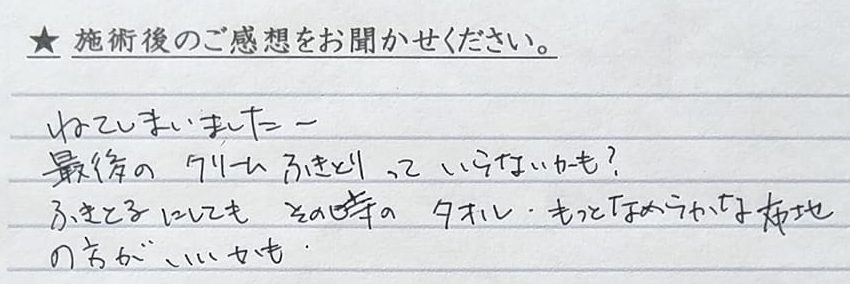 ★ 施術後のご感想をお聞かせください。
ねてしまいました〜
最後の クリーム ふきとりって いらないかも?
ふきとるにしても その時の タオル・もっとなめらかな布地
の方が いいかも.